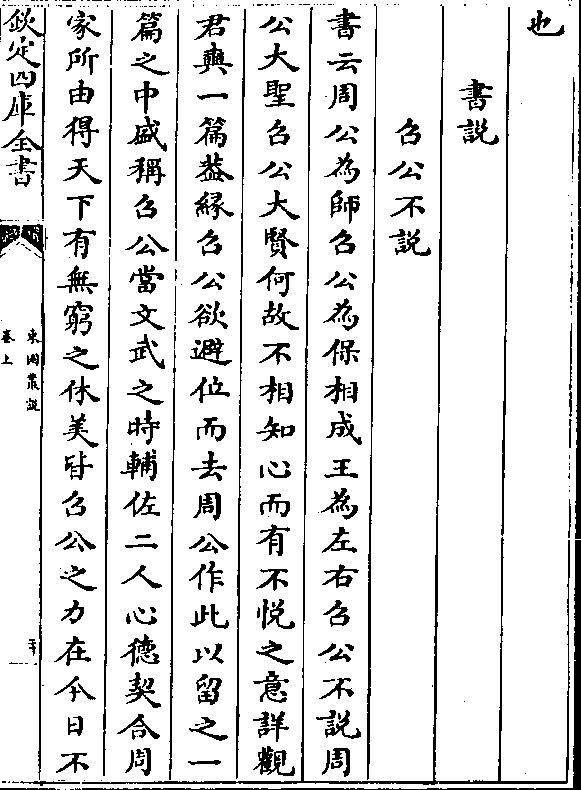 也
書説
召公不説
書云周公為師召公為保相成王為左右召公不説周
公大聖召公大賢何故不相知心而有不悦之意詳觀
君奭一篇葢緣召公欲避位而去周公作此以留之一
篇之中盛稱召公當文武之時輔佐二人心徳契合周
家所由得天下有無窮之休美皆召公之力在今日不
欽定四庫全書
東園叢説
卷上